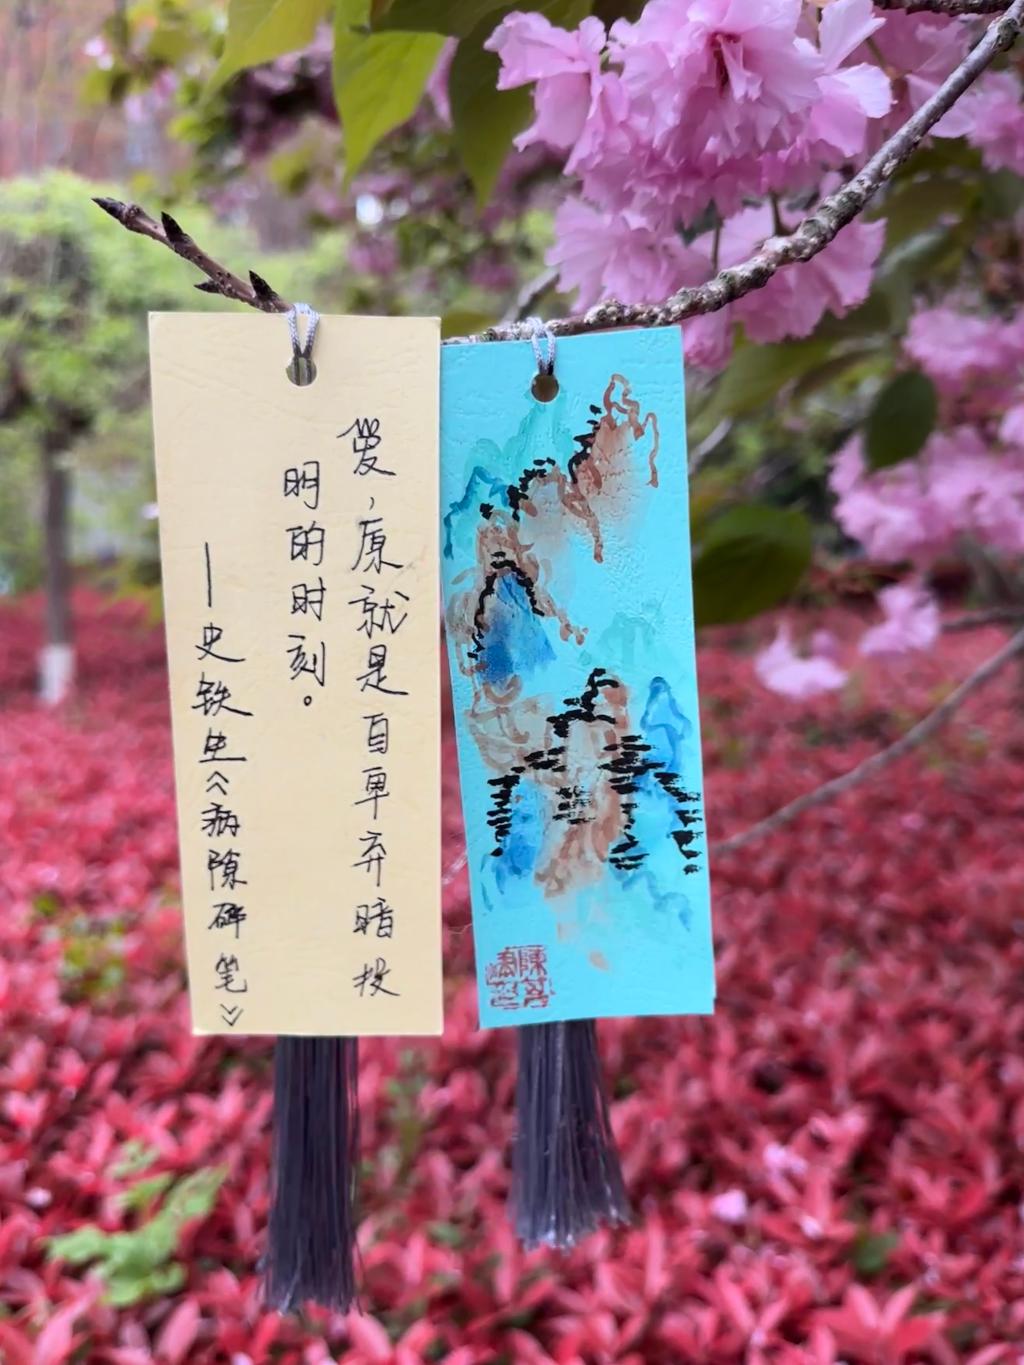 爱，原就是自卑弃暗投
明的时刻。
——史铁生《病隙碎笔》